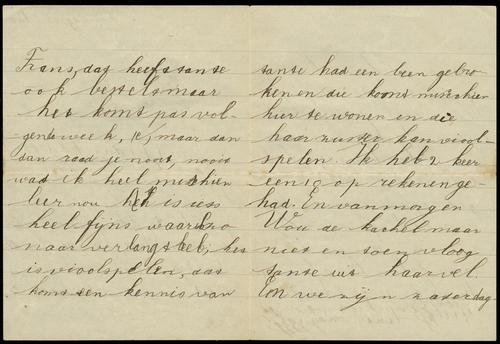 Frans, dat heeft tante
ook besteld maar
het komt pas vol-
gende week, maar dan
dan raad je nooit, nooit
wat ik heel misschien
leer nou het is iets
heel fijns waar
naar verlangt heb, het
is vioolspelen, dat
komt een kennis van
tante had een been gebro-
ken en die komt misschien
hier te wonen en die
haar zuster kan viool-
spelen. Ik heb 2 keer
een 10 op rekenen ge-
had. En vanmorgen
Wou de kachel maar
niet en toen vloog
tante uit haar vel.
En we zijn zaterdag